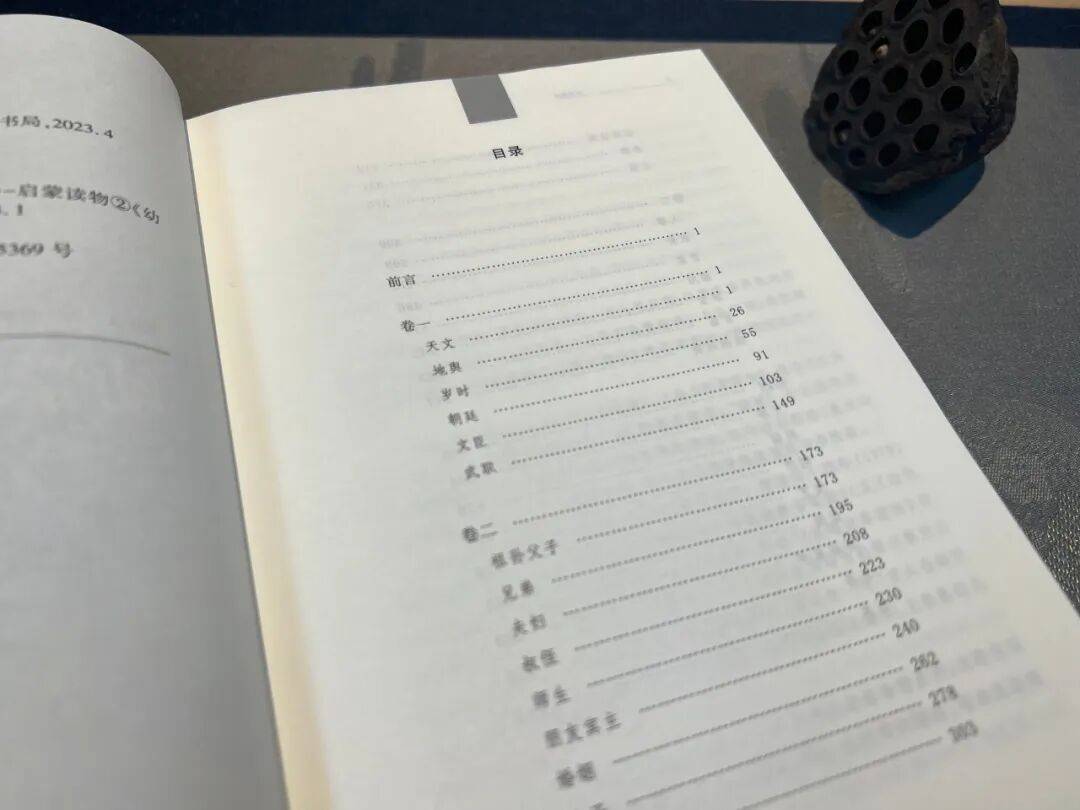 书局,2023.4
启蒙读物②《幼
.1
5369 号
目录
前言 …… 1
卷一 …… 1
天文 …… 1
地舆 …… 26
岁时 …… 55
朝廷 …… 91
文臣 …… 103
武职 …… 149
卷二 …… 173
祖孙父子 …… 173
兄弟 …… 195
夫妇 …… 208
叔侄 …… 223
师生 …… 230
朋友宾主 …… 240
婚姻 …… 262
278
303